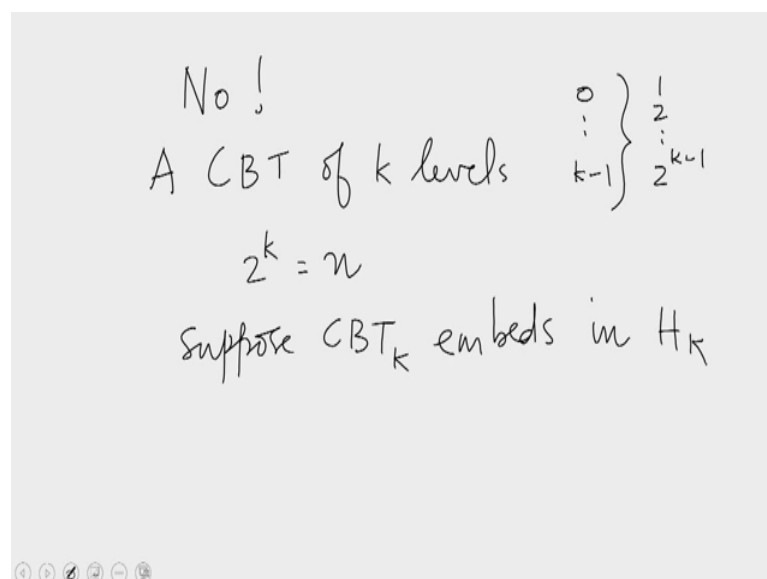 No!
0 } 1
⋮ 2
A CBT of k levels k-1 ⋮ 2^{k-1}
2^k = n
suppose CBT_k embeds in H_k